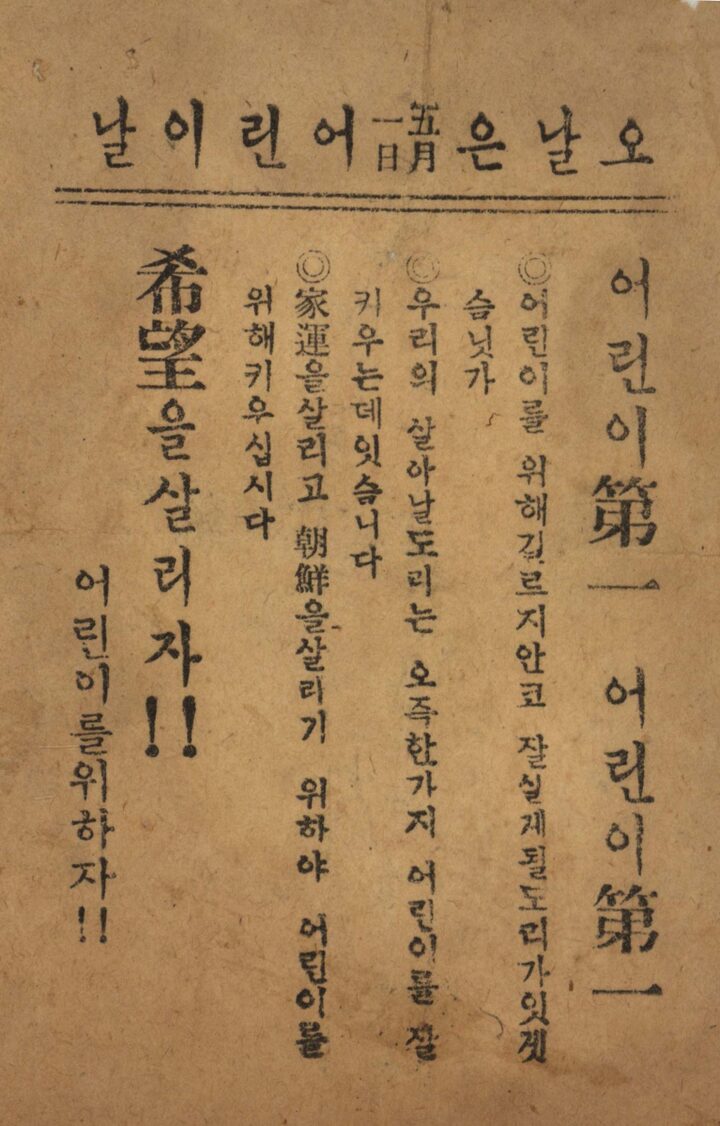 오날은五月一日어린이날
어린이第一 어린이第一
◎어린이를 위해길르지안코 잘살게될도리가잇겟
슴닛가
◎우리의 살아날도리는 오즉한가지 어린이를 잘
키우는데잇슴니다
◎家運을살리고 朝鮮을살리기 위하야 어린이를
위해키우십시다
希望을살리자!!
어린이를위하자!!